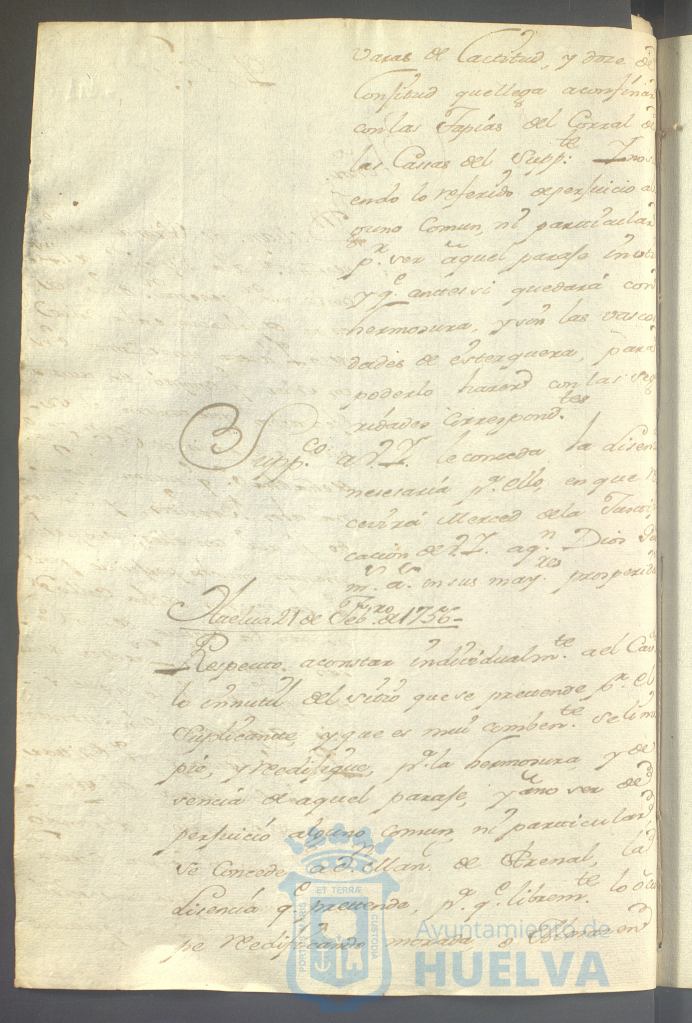 varas de Lactitud, y doze de
Lonsitud que llega a confinar
con las Tapias del Corral de
las Cassas del Supp.te Y no si
endo lo referido de perjuicio al
guno Comun, ni particular
p.r ver aquel paraje inutil
y q.e antes si quedará con
hermosura, y sin las vascoci
dades de esterquera, para
poderlo hazer con las segu
ridades correspond.tes
Supp.co a V.S. le conceda la lisen
nesesaria p.a ello, en que re
civirá Merced de la Justifi
cacion de V.S. a q.n Dios gu
m.s a.s en sus may.res prosperid
Huelva 21 de Feb.ro de 1756
Respecto a constar individualm.te a el Cav
lo innutil del sitio que se pretende p.r el
Suplicante, y que es mui comben.te se lim
pie, y reedifique, p.a la hermosura y de
sencia de aquel paraje, y no ser de
perjuicio alguno comun, ni particular,
se Concede a D.n Man.l de Arenal, la
lisencia q.e pretende, p.a q.e librem.te lo ocu
pe reedificando morada, o
PORTUS MARIS ET TERRAE CUSTODIA
Ayuntamiento de
HUELVA